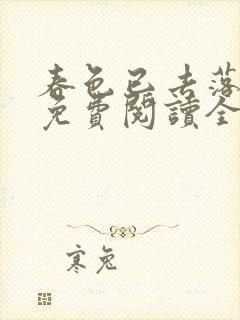 春色已去落
免費閱讀全
寒兔